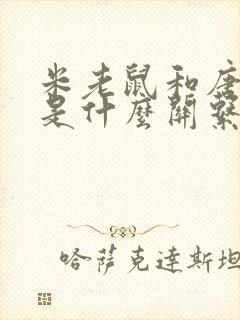 米老鼠和唐
是什麼關繫
哈萨克达斯坦